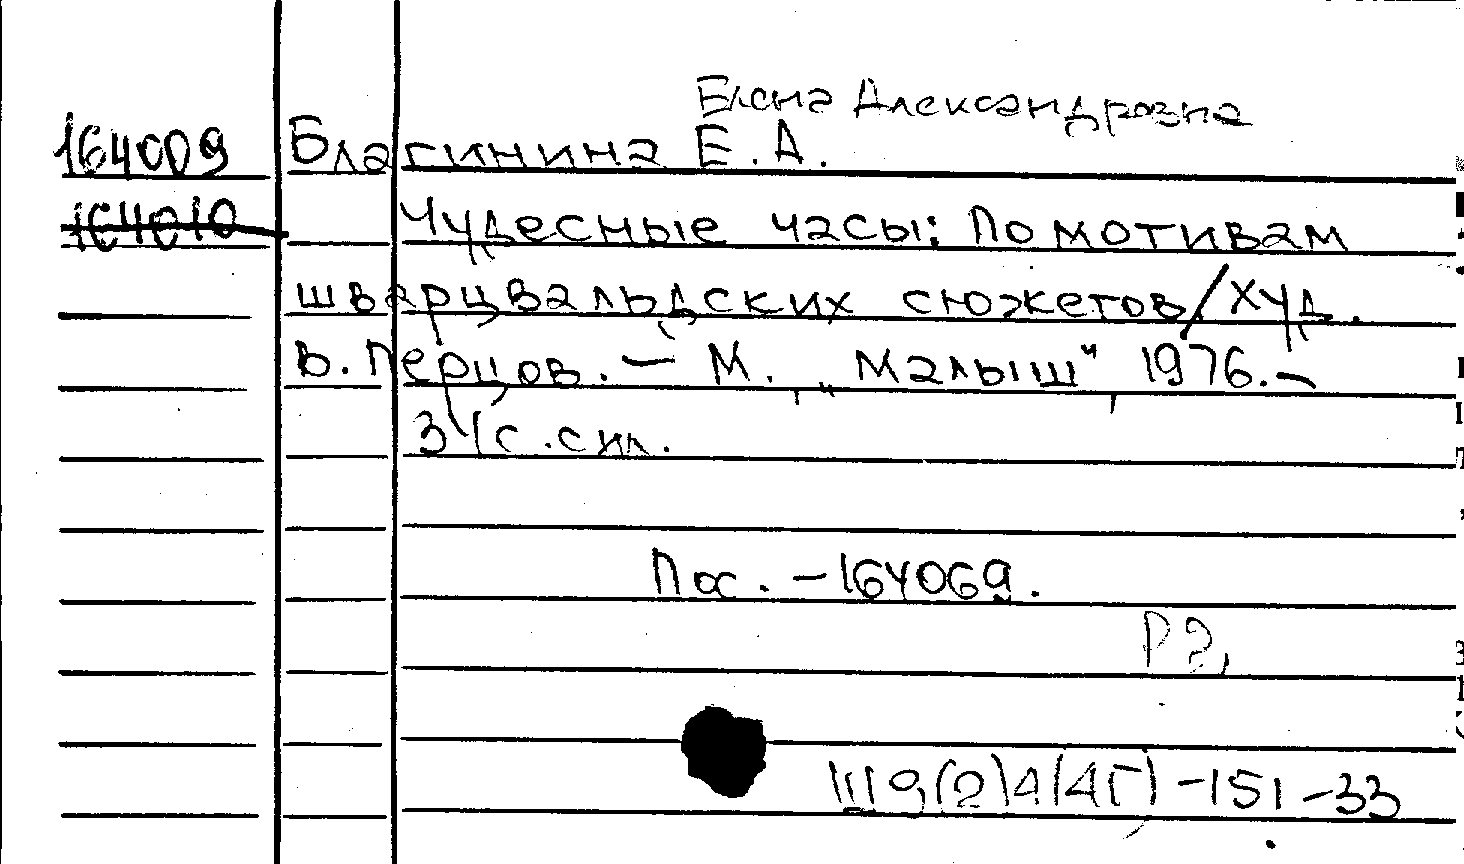 Елена Александровна
164009 Благинина Е. А.
164010 Чудесные часы: По мотивам
шварцвальдских сюжетов/худ.
В. Перцов. — М. „Малыш“ 1976. –
34с. с ил.
Пос. – 164069.
Р2,
Ш9(2)4(4Г) – 151 – 33